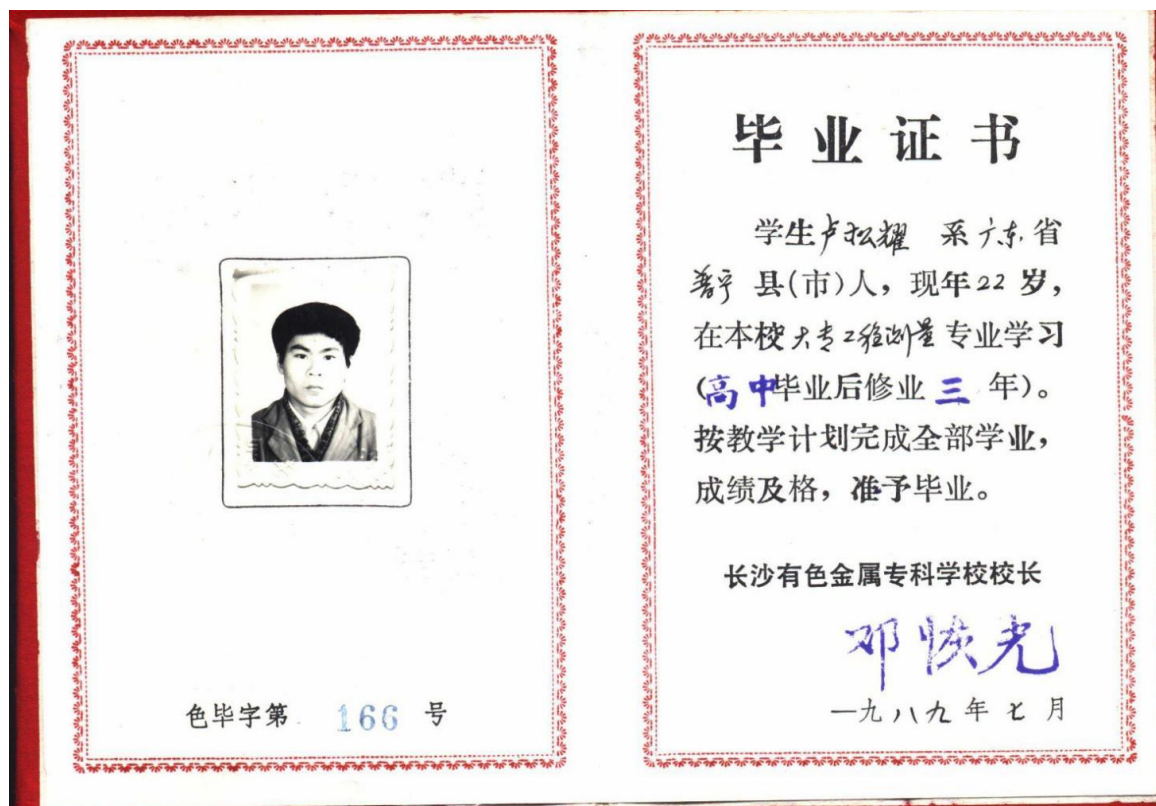 色毕字第 166 号
毕业证书
学生卢松耀 系广东省
普宁县(市)人，现年22岁，
在本校大专工程测量专业学习
(高中毕业后修业三年)。
按教学计划完成全部学业，
成绩及格，准予毕业。
长沙有色金属专科学校校长
邓恢光
一九八九年七月